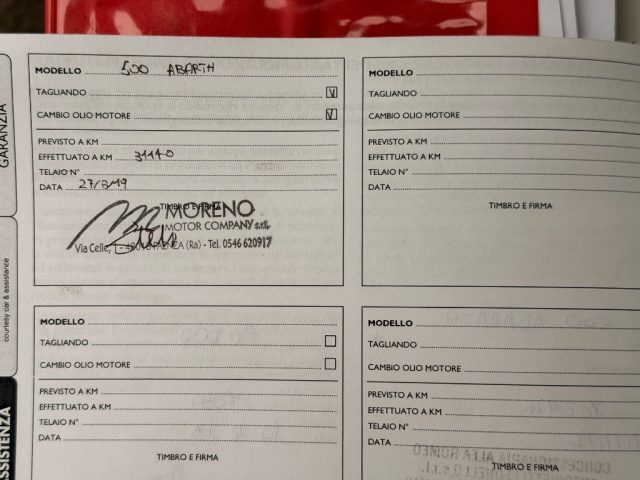 GARANZIA
courtesy car & assistance
MODELLO 500 ABARTH
TAGLIANDO V
CAMBIO OLIO MOTORE V
PREVISTO A KM
EFFETTUATO A KM 31140
TELAIO N°
DATA
TIMBRO E FIRMA
MORENO
MOTOR COMPANY s.r.l.
Via Celle, - Tel. 0546 620917
MODELLO
TAGLIANDO
CAMBIO OLIO MOTORE
PREVISTO A KM
EFFETTUATO A KM
TELAIO N°
DATA
TIMBRO E FIRMA
MODELLO
TAGLIANDO
CAMBIO OLIO MOTORE
PREVISTO A KM
EFFETTUATO A KM
TELAIO N°
DATA
TIMBRO E FIRMA
MODELLO
TAGLIANDO
CAMBIO OLIO MOTORE
PREVISTO A KM
EFFETTUATO A KM
TELAIO N°
DATA
TIMBRO E FIRMA